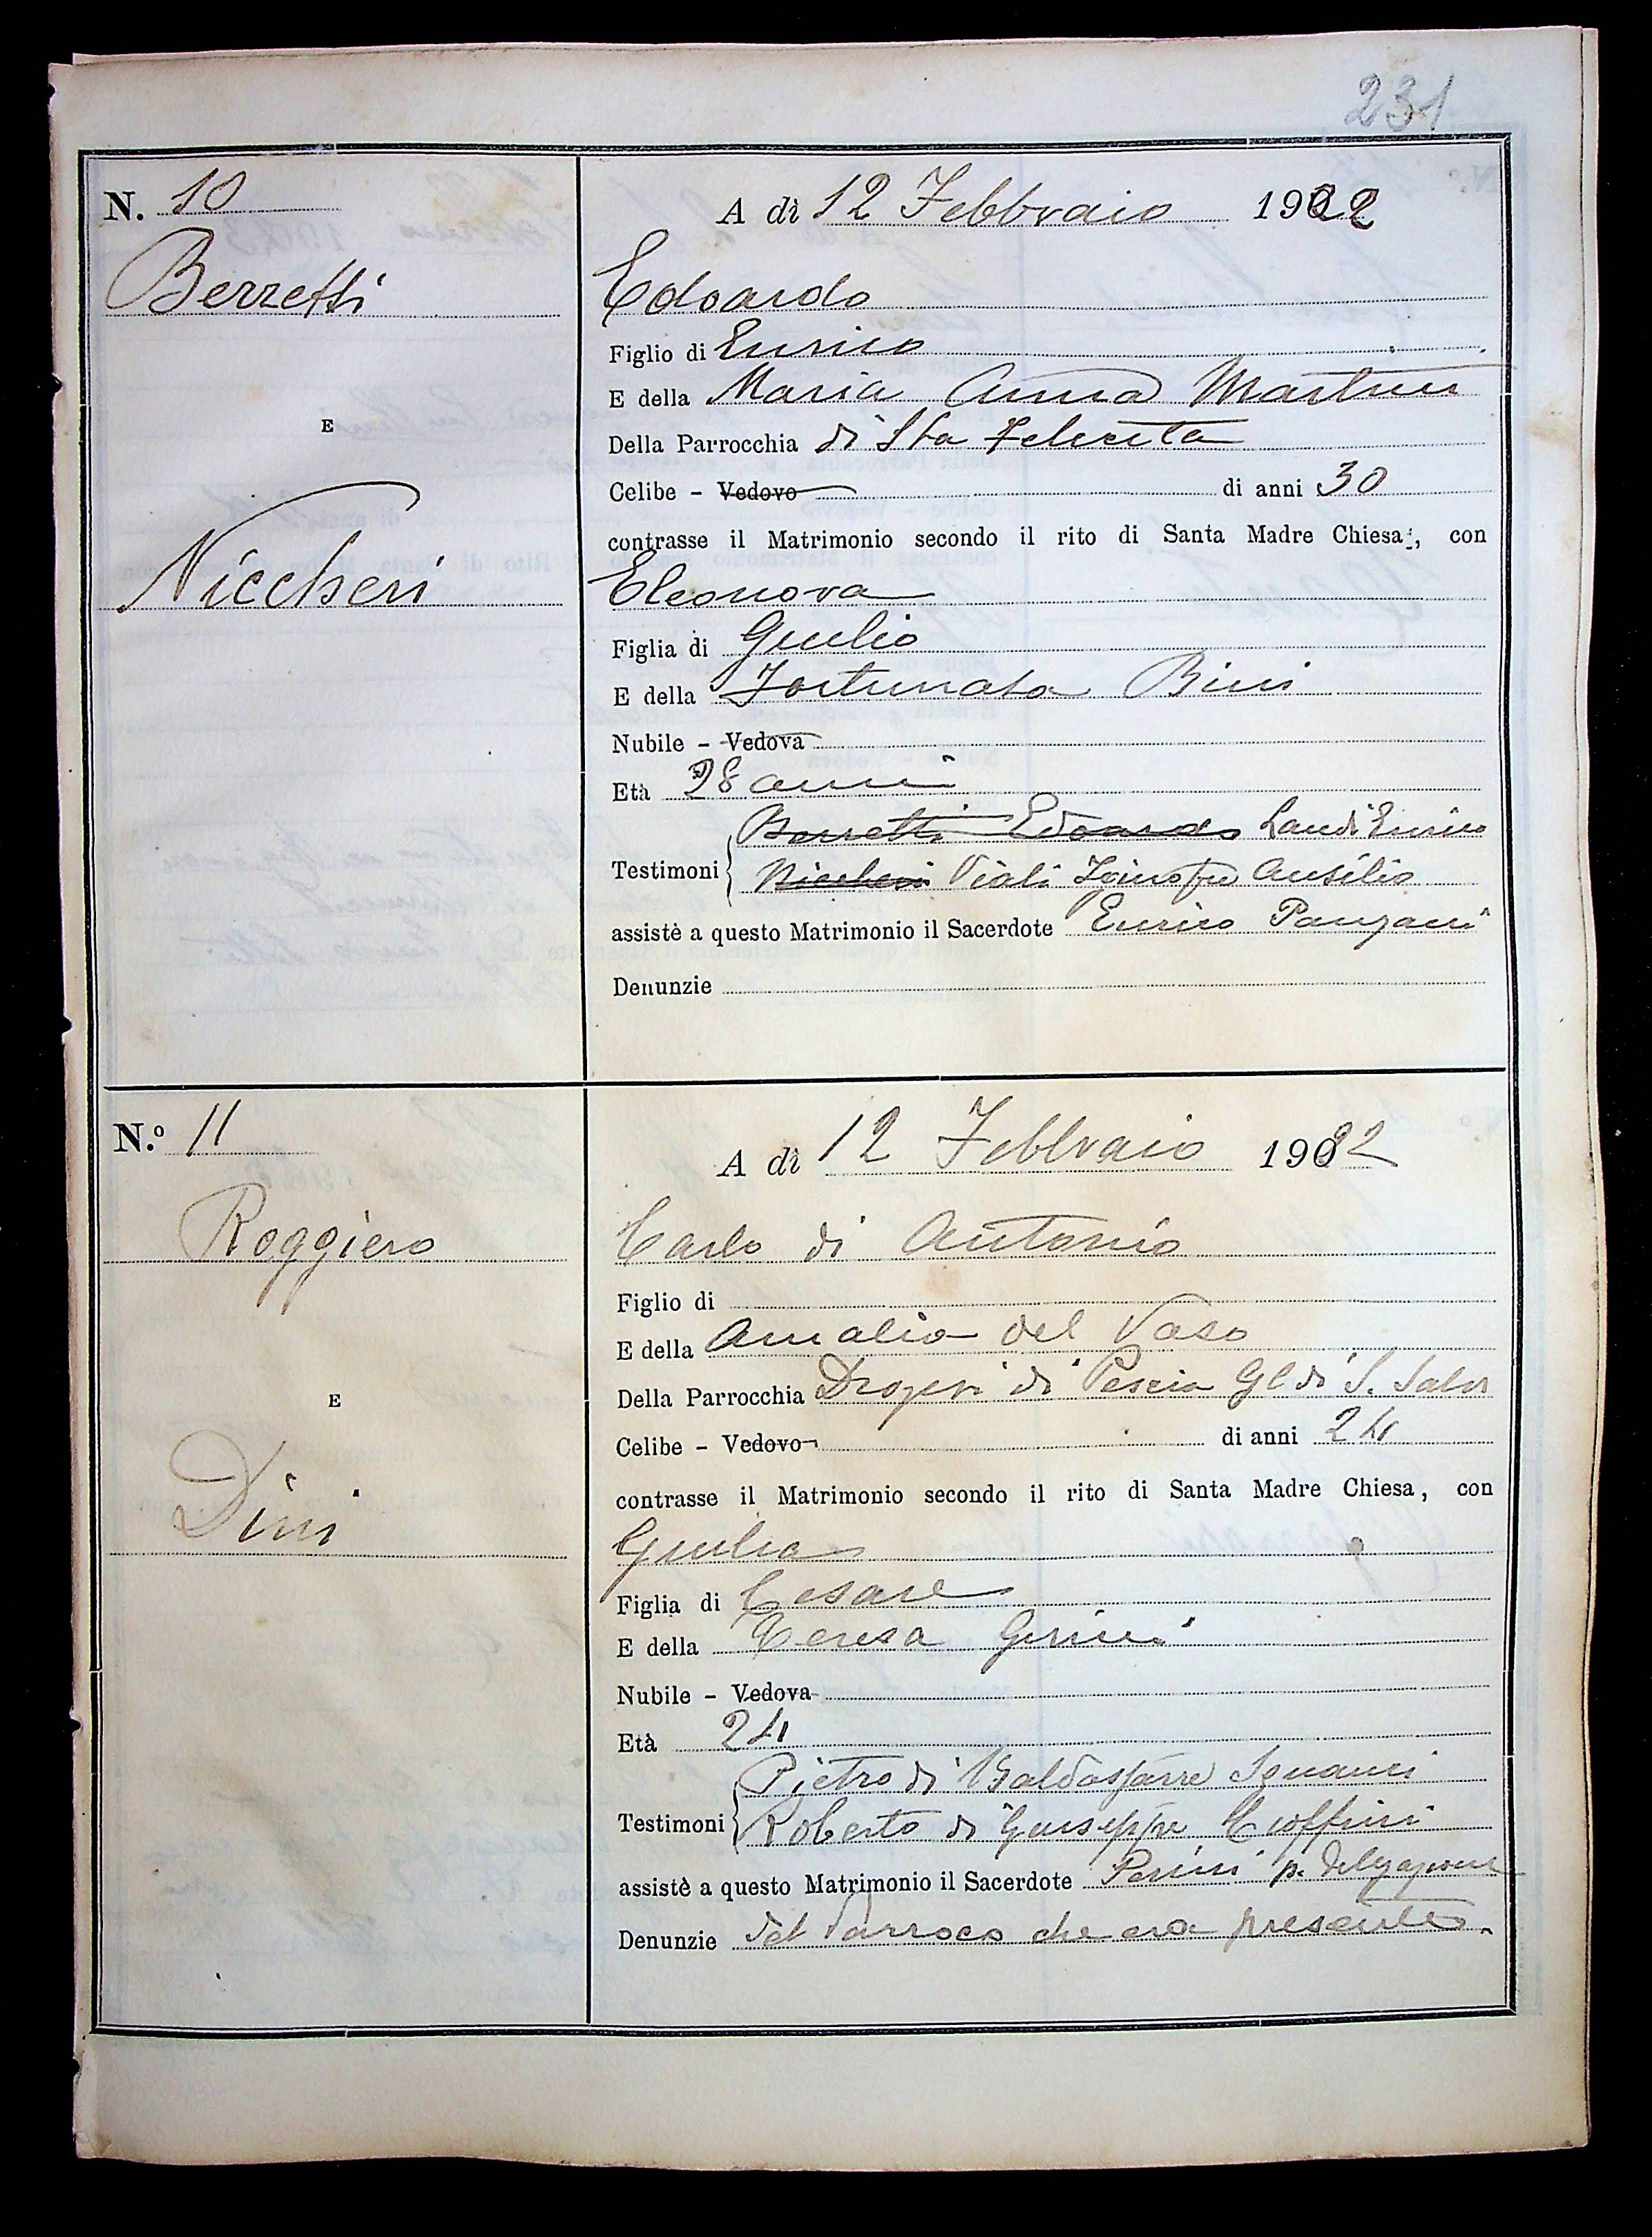 231
N. 10
A dì 12 Febbraio 1922
Berzetti
Edoardo
Figlio di Enrico
E della Maria Anna Martini
Della Parrocchia di Sta Felicita
E
Celibe - Vedovo di anni 30
contrasse il Matrimonio secondo il rito di Santa Madre Chiesa, con
Niccheri
Eleonora
Figlia di Giulio
E della Fortunata Bini
Nubile - Vedova
Età 28 anni
Berzetti Edoardo Landi Enrico
Testimoni Niccheri Viali Ausilio
assistè a questo Matrimonio il Sacerdote Enrico Panzani
Denunzie
N.º 11
A dì 12 Febbraio 1922
Roggiero
Carlo di Antonio
Figlio di
E della Amalia del Vaso
Della Parrocchia di Pescia di S. Salv
E
Celibe - Vedovo di anni 24
contrasse il Matrimonio secondo il rito di Santa Madre Chiesa, con
Dini
Giulia
Figlia di Cesare
E della Teresa Gerini
Nubile - Vedova
Età 24
Pietro di Baldassarre
Testimoni Roberto di Giuseppe Cioffini
assistè a questo Matrimonio il Sacerdote Perini p. delegazione
Denunzie del Parroco che era presente.